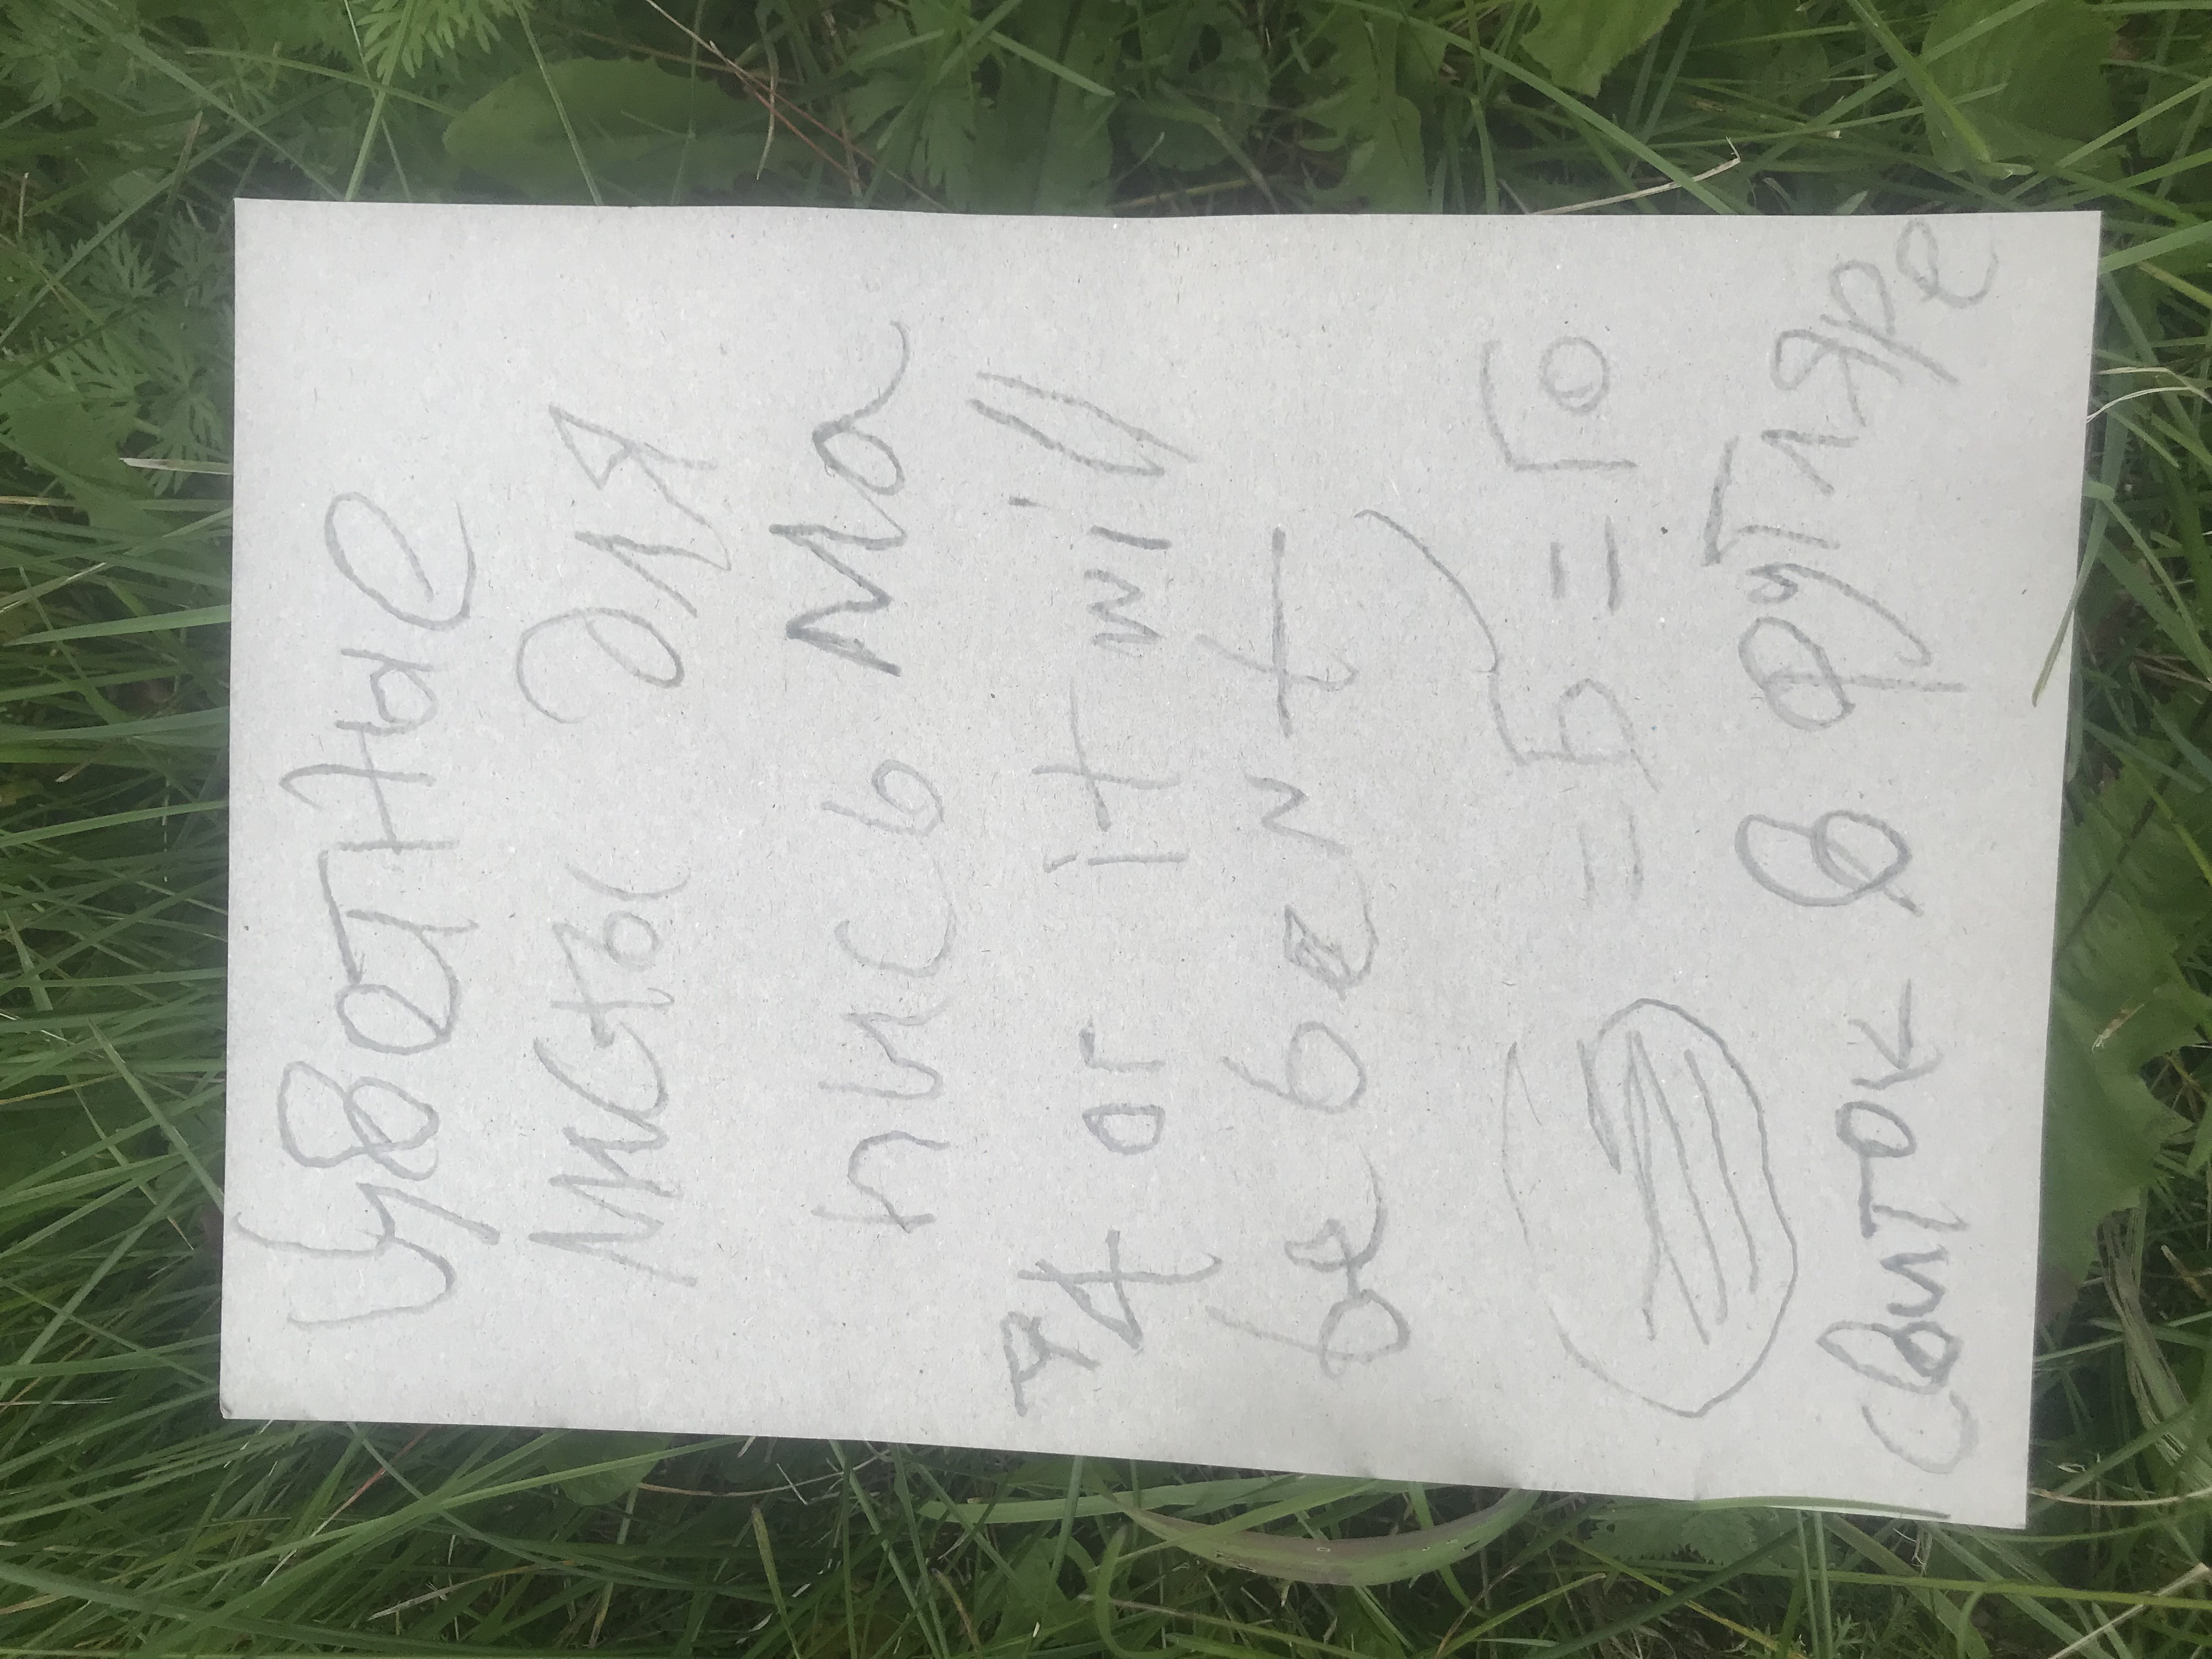 Цветные
листы для
письма
A4 or it will
be bent,
= Б = Го
свиток в футляре